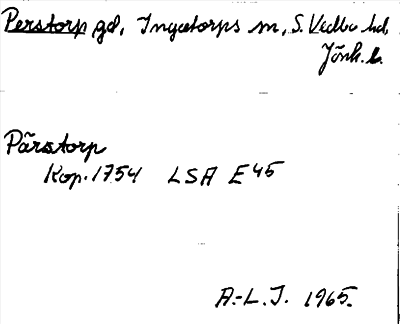 Perstorp gd, Ingatorps sn, S. Vedbo hd,
Jönk. l.
Pärstorp
Kop. 1754 LSA E 45
A.-L. J. 1965.